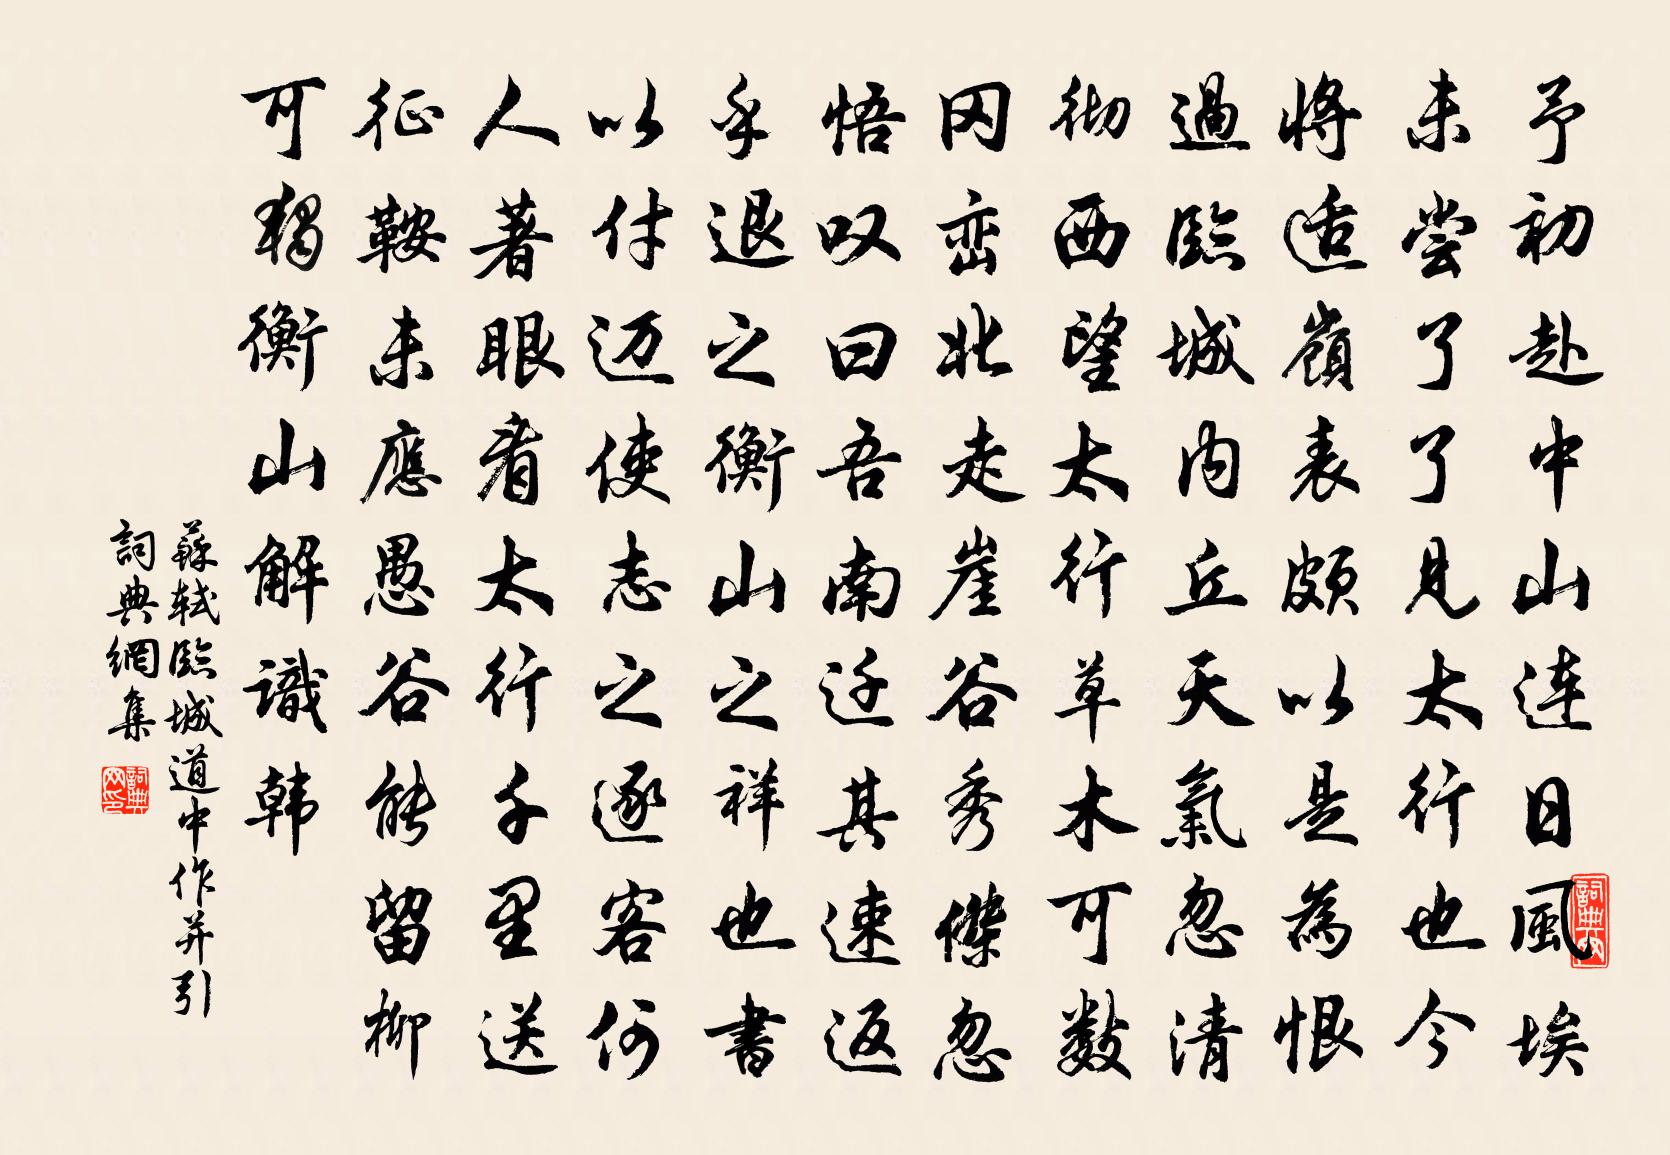 予初赴中山連日風埃
未尝了了見太行也今
将适嶺表頗以是為恨
過臨城内丘天氣忽清
彻西望太行草木可數
冈峦北走崖谷秀傑忽
悟叹曰吾南迁其速返
乎退之衡山之祥也書
以付迈使志之逐客何
人著眼看太行千里送
征鞍未應愚谷能留柳
可獨衡山解識韩
蘇軾臨城道中作并引
詞典網集
詞典网印
詞典网